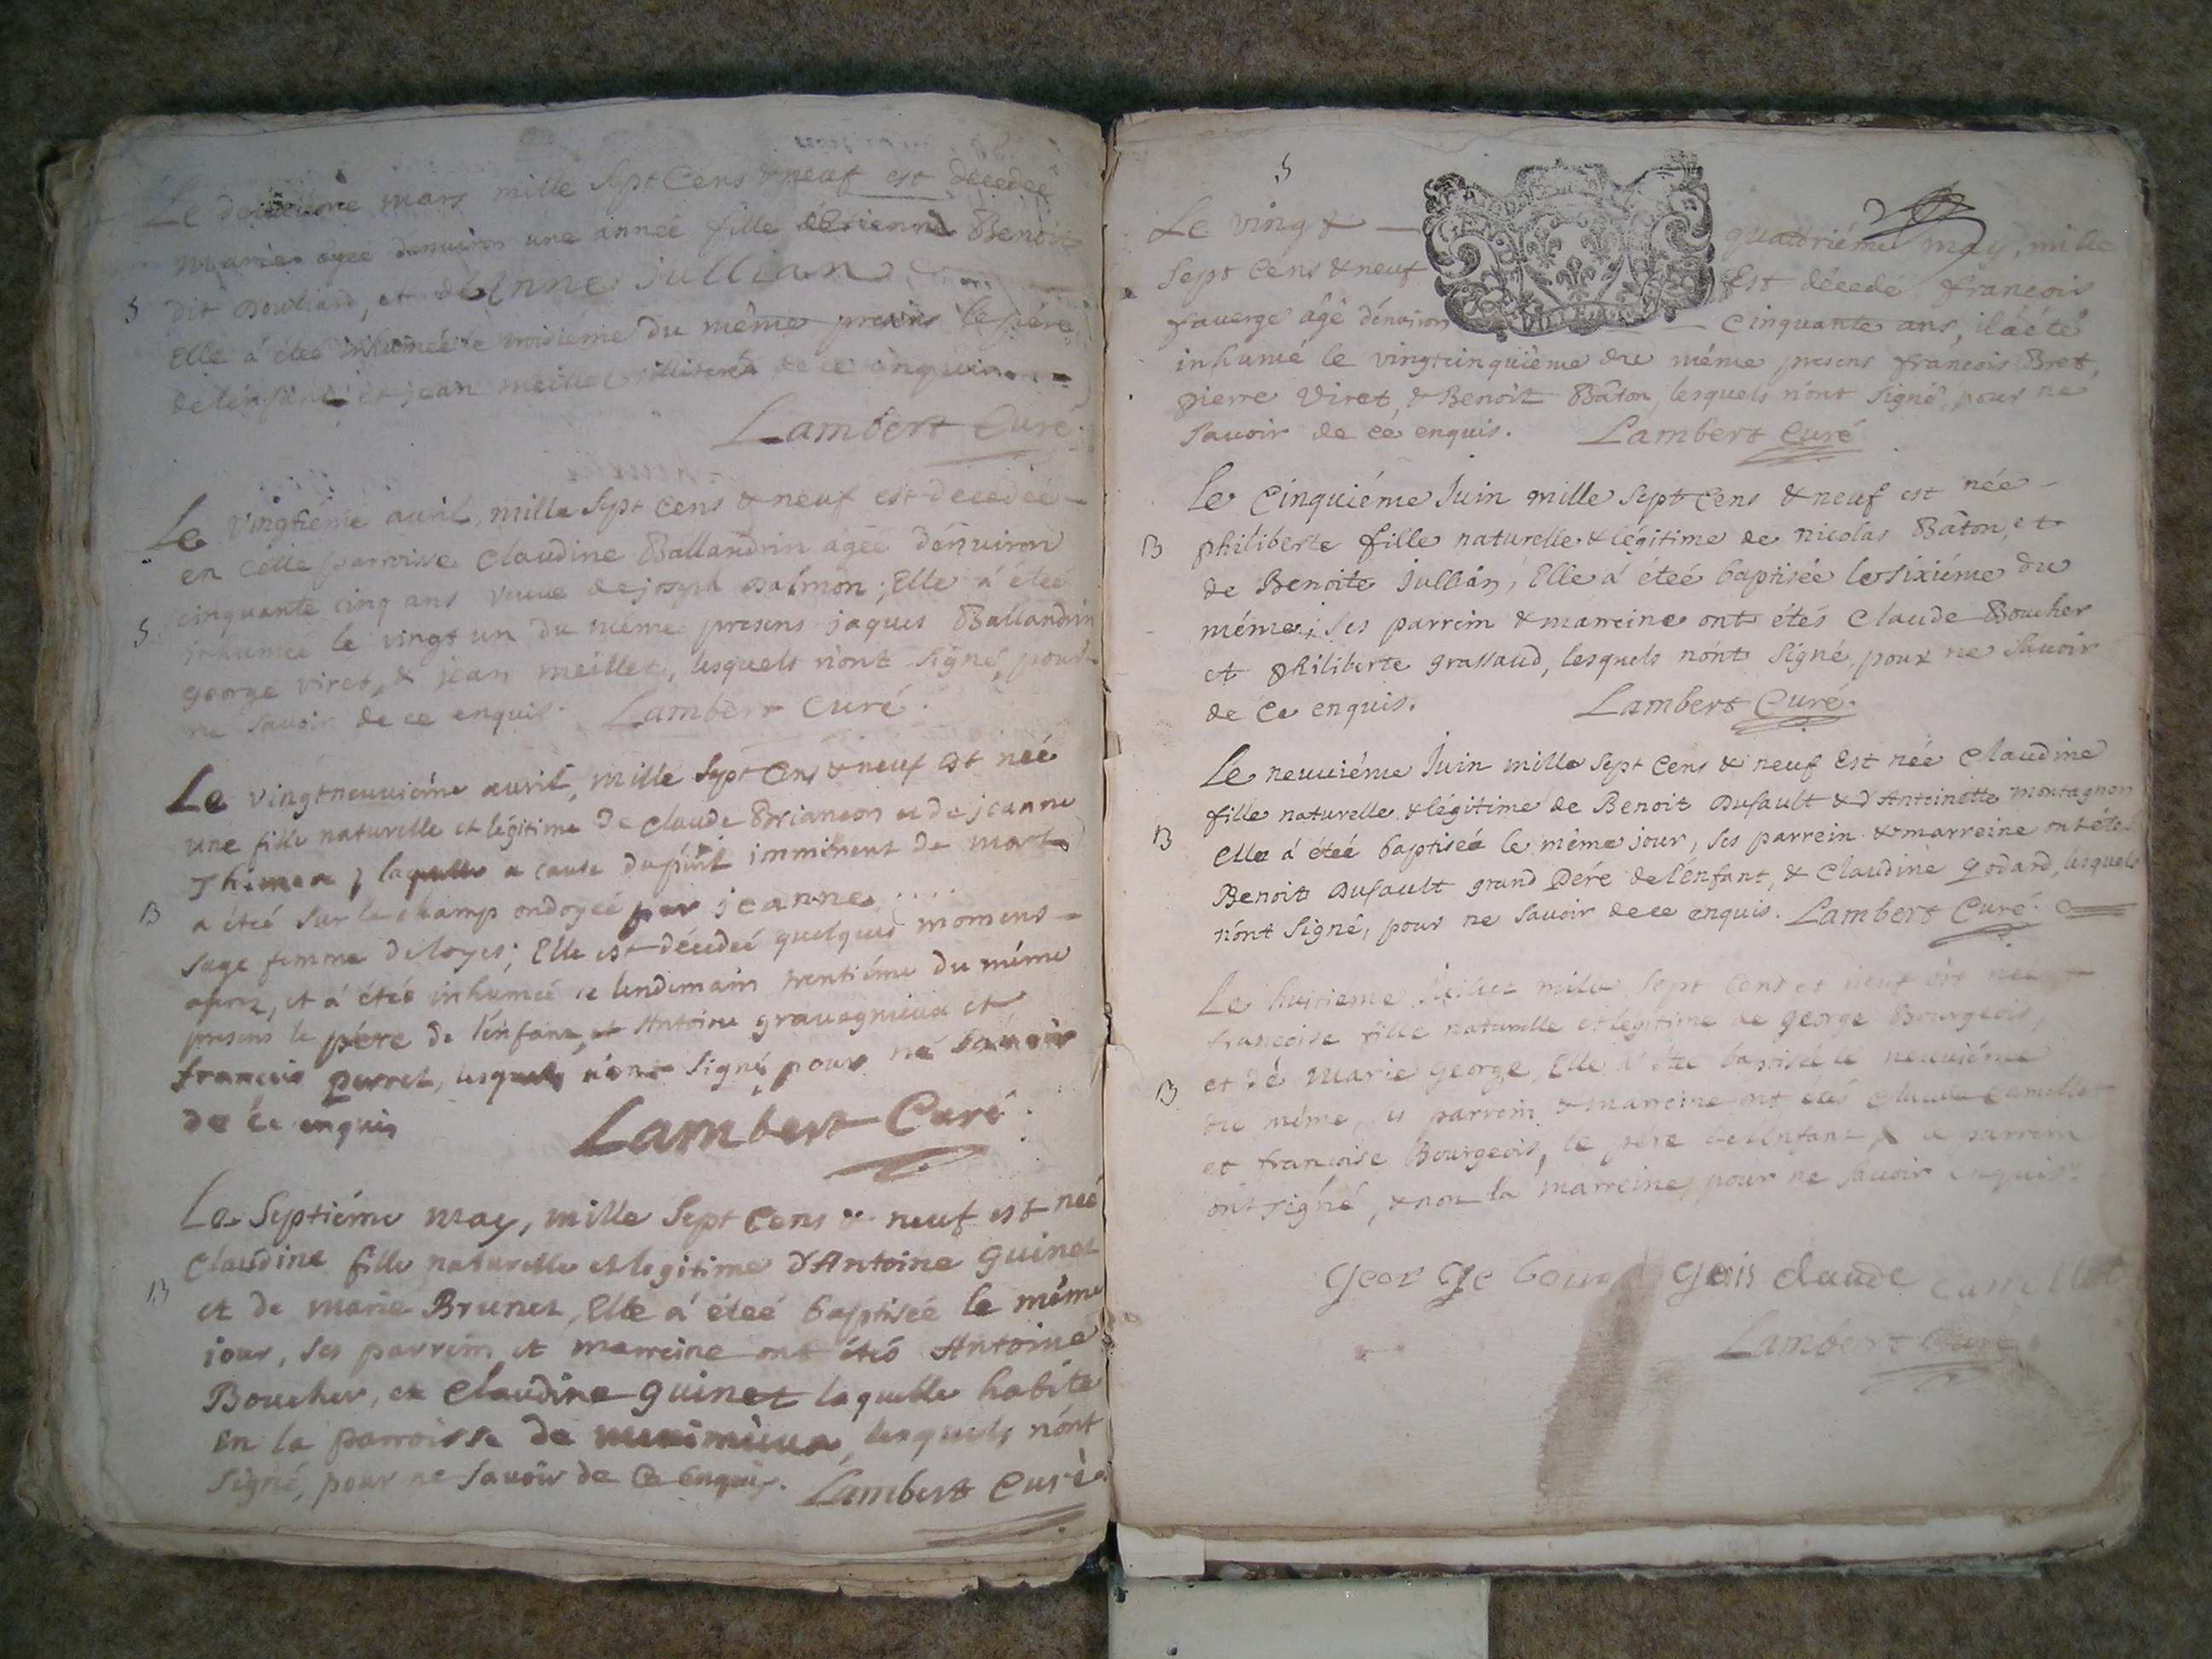 Le deuxième mars mille Sept Cens & neuf est décedeé
Marie agée dénviron une année fille détienne Benoit
S dit, et dénne jullian
Elle á éteé inhumée le troisiéme du même presens le pére
de lénfant, et jean meillet de ce enquis
Lambert Curé.
Le vingtiéme avril mille Sept Cens & neuf est decedeé
en cette parroisse Claudine Ballandrin agée dénviron
cinquante cinq ans veuve de joseph ; Elle á éteé
S inhumée le vingt un du même presens jaques Ballandrin
george viret, & jean meillet, lesquels n'ont signé, pour
ne savoir de ce enquis. Lambert Curé.
Le vingtneuviéme avril, mille Sept Cens & neuf est neé
une fille naturelle et légitime de Claude Briancon et de jeanne
laquelle a cause du péril imminent de mort
B a éteé sur le champ ondoyeé par jeanne ....
sage femme de loyes; Elle est décedeé quelques momens
aprez, et á éteé inhumeé le lendemain trentiéme du méme
presens le pére de lénfant, et Antoine gravagnieux et
francois perret, lesquels n'ont signé, pour ne savoir
de ce enquis
Lambert Curé.
Le Septiéme may, mille Sept Cens & neuf est neé
Claudine fille naturelle et legitime d'Antoine guinet
B et de marie Brunet, Elle á éteé baptisée le méme
jour, ses parrein et marreine ont étés Antoine
Boucher, et Claudine guinet laquelle habite
en la parroisse de meximieux, lesquels n'ont
signé, pour ne savoir de ce enquis. Lambert Curé.
S
Le vingt quattriéme may, mille
Sept Cens & neuf Est décedé francois
faverge âgé dénviron cinquante ans, il á été
inhumé le vingtcinquiéme du méme presens francois Bret,
pierre Viret, & Benoit Bâton, lesquels nónt Signé pour ne
Savoir de ce enquis. Lambert Curé
Le Cinquiéme Juin mille Sept Cens & neuf est née
B philiberte fille naturelle & légitime de nicolas Bâton, et
de Benoite jullian, Elle á éteé baptisée le sixiéme du
méme; Ses parrein & marreine ont étés Claude Boucher
et philiberte grassaud, lesquels nónt Signé, pour ne Savoir
de ce enquis. Lambert Curé.
Le neuviéme Juin mille Sept Cens & neuf Est née Claudine
fille naturelle & légitime de Benoit Dufault & d'Antoinette montagnon
B Elle á éteé baptiseé le méme jour, ses parrein & marreine ont étés
Benoit Dufault grand Pére de lénfant, & Claudine godard, lesquels
nónt Signé, pour ne Savoir de ce enquis. Lambert Curé.
Le huitieme juillet mille Sept Cens et neuf est neé
francoise fille naturelle et légitime de george Bourgeois,
B et de Marie george, Elle á été baptisée le neuviéme
du méme, ses parrein & marreine ont étés Claude Camellet
et francoise Bourgeois, le pére de lénfant, & le parrein
ont signé, & non la marreine, pour ne savoir enquis.
George bourgeois claude camellet
Lambert Curé